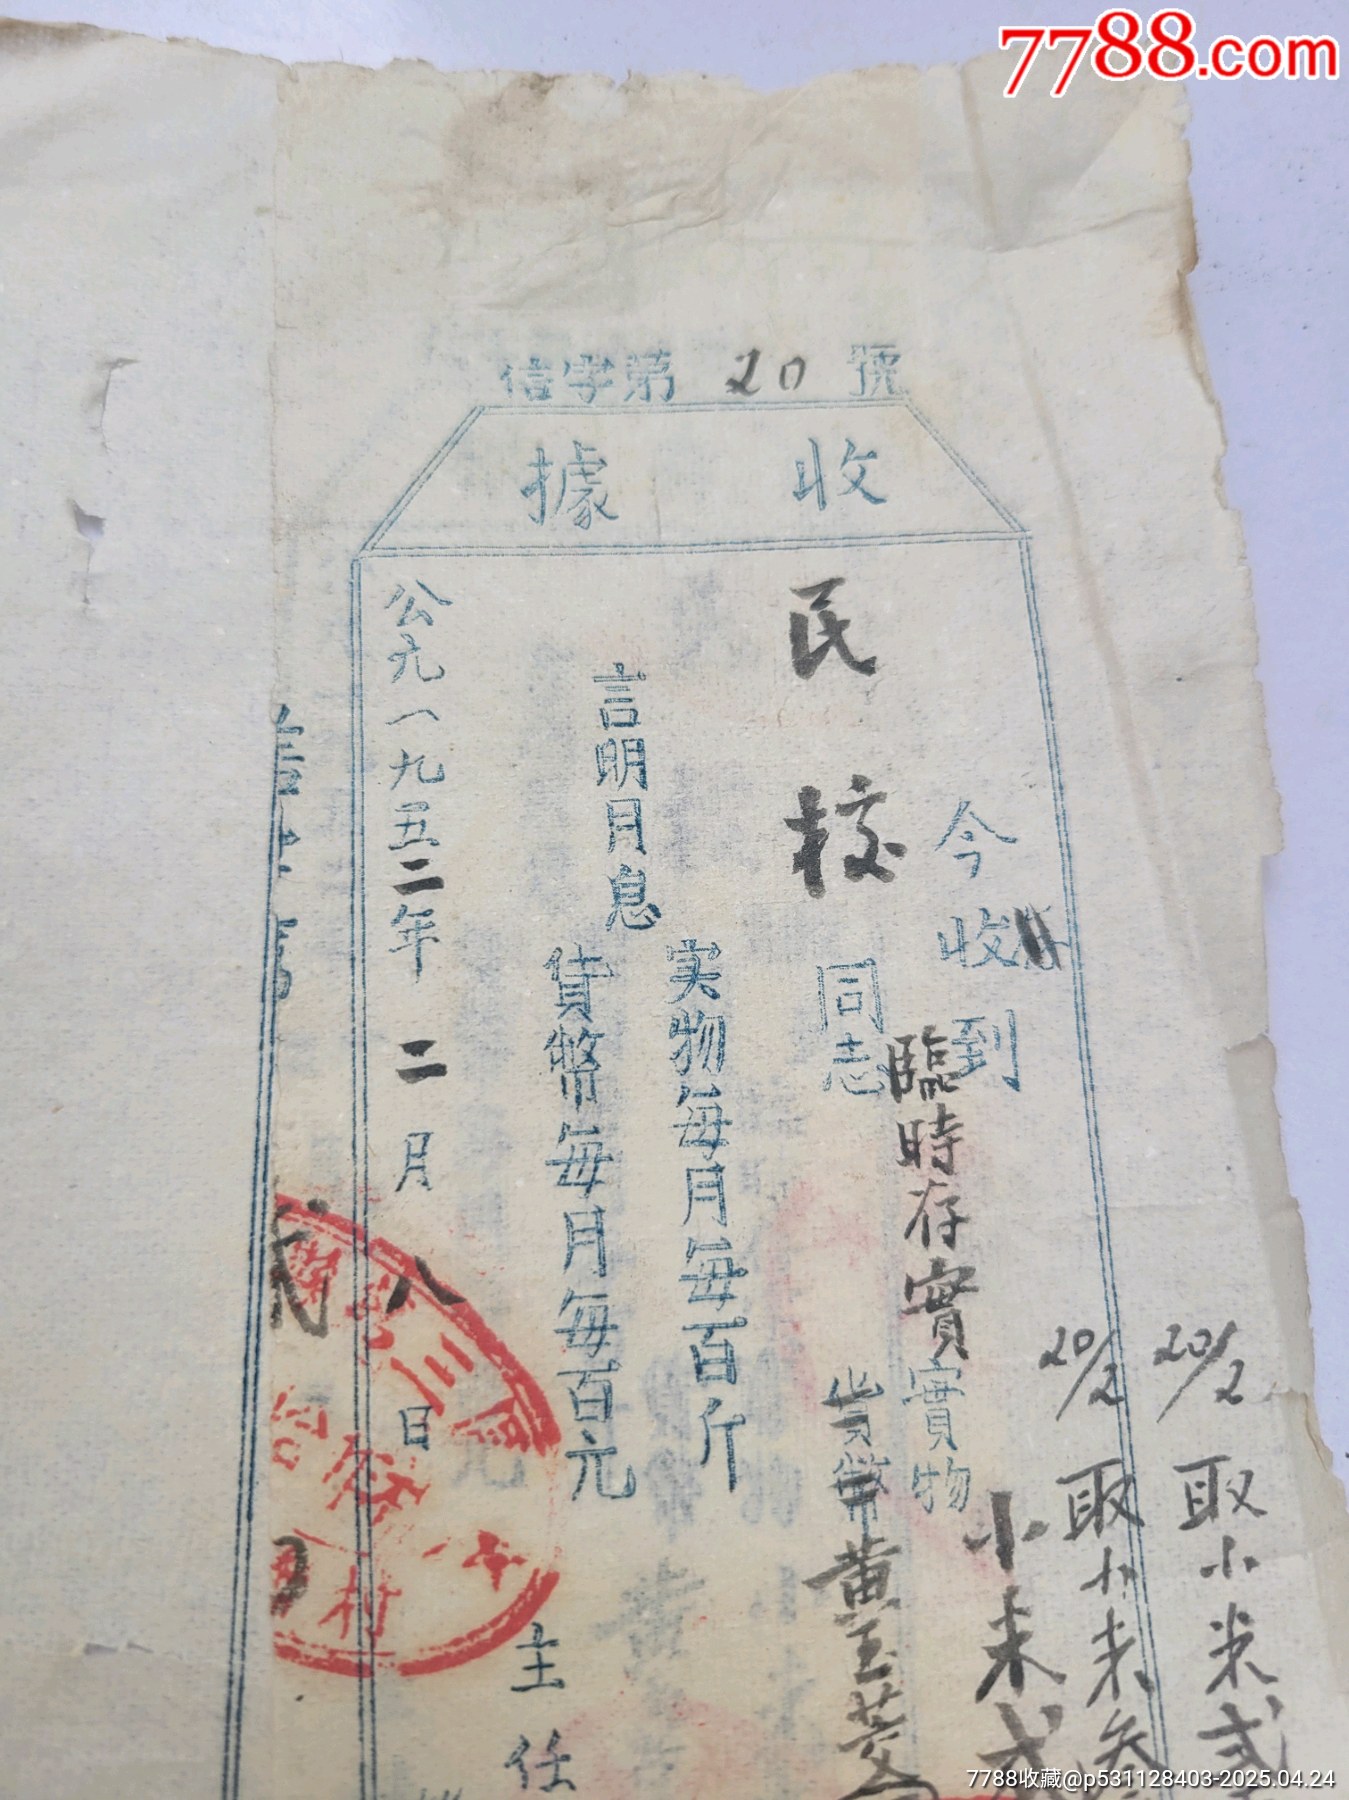 7788.com
信字第 20 號
收據
今收到
民校同志
臨時存實
實物
貨幣
小米
黄玉
20/2 取小米
20/2 取小米叁
言明月息
实物每月每百斤
貨幣每月每百元
公元一九五二年二月八日
主任
村
7788收藏@p531128403-2025.04.24